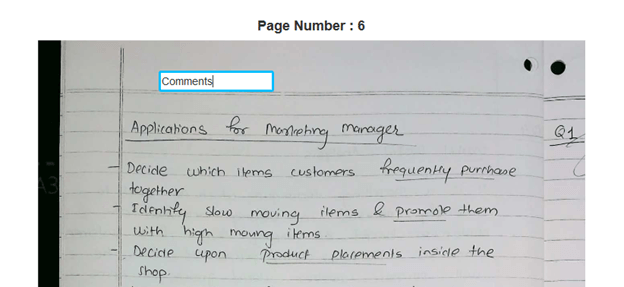 Page Number : 6
Comments
Applications for Marketing manager
Q1
- Decide which items customers frequently purchase
together
- Identify slow moving items & promote them
with high moving items.
- Decide upon product placements inside the
shop.